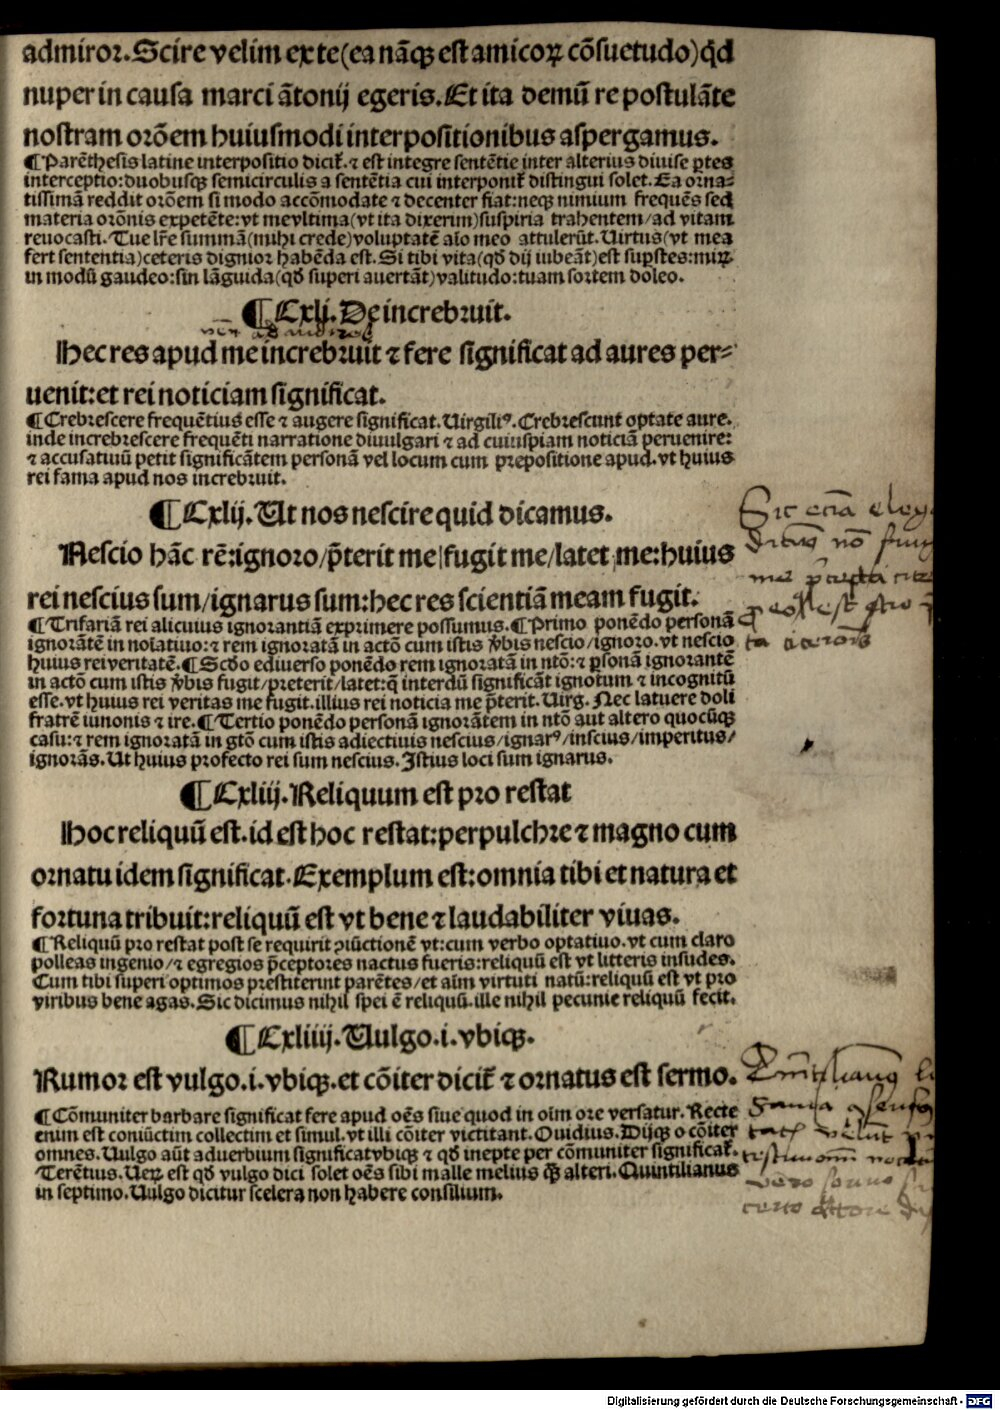 admiror. Scire velim ex te (ea nãqꝫ est amicoꝝ cõsuetudo) qͥd
nuper in causa marci ãtonij egeris. Et ita demũ re postulãte
nostram orõem huiusmodi interpositionibus aspergamus.
¶ Parẽthesis latine interpositio dicit̃. ⁊ est integre sentẽtie inter alterius diuise ꝑtes
interceptio: duobusqꝫ semicirculis a sentẽtia cui interponit̃ distingui solet. Ea orna⸗
tissimã reddit orõem si modo accõmodate ⁊ decenter fiat: neqꝫ nimium frequẽs sed
materia orõnis expetẽte: vt me vltima (vt ita dixerim) suspiria trahentem / ad vitam
reuocasti. Tue lr̃e summã (mihi crede) voluptatẽ aĩo meo attulerũt. Uirtus (vt mea
fert sententia) ceteris dignior habẽda est. Si tibi vita (qđ dij iubeãt) est supstes: miꝝ
in modũ gaudeo: sin lãguida (qđ superi auertãt) valitudo: tuam sortem doleo.
¶ Cxlj. De increbruit.
Hec res apud me increbruit ⁊ fere significat ad aures per⸗
uenit: et rei noticiam significat.
¶ Crebrescere frequẽtius esse ⁊ augere significat. Uirgiliꝰ. Crebrescunt optate aure.
inde increbrescere frequẽti narratione diuulgari ⁊ ad cuiuspiam noticiã peruenire:
⁊ accusatiuũ petit significãtem personã vel locum cum prepositione apud. vt huius
rei fama apud nos increbruit.
¶ Cxlij. Ut nos nescire quid dicamus.
Nescio hãc rẽ: ignoro / p̃terit me | fugit me / latet me: huius
rei nescius sum / ignarus sum: hec res scientiã meam fugit.
¶ Trifariã rei alicuius ignorantiã exprimere possumus. ¶ Primo ponẽdo personã
ignorãtẽ in noĩatiuo: ⁊ rem ignoratã in actõ cum istis v̾bis nescio / ignoro. vt nescio
huius rei veritatẽ. ¶ Scđo ediuerso ponẽdo rem ignoratã in ntõ: ⁊ ꝑsonã ignorantẽ
in actõ cum istis v̾bis fugit / preterit / latet: q̃ interdũ significãt ignotum ⁊ incognitũ
esse. vt huius rei veritas me fugit. illius rei noticia me p̃terit. Uirg. Nec latuere doli
fratrẽ iunonis ⁊ ire. ¶ Tertio ponẽdo personã ignorãtem in ntõ aut altero quocũqꝫ
casu: ⁊ rem ignoratã in gtõ cum istis adiectiuis nescius / ignarꝰ / inscius / imperitus /
ignorãs. Ut huius profecto rei sum nescius. Istius loci sum ignarus.
¶ Cxliij. Reliquum est pro restat
Hoc reliquũ est. id est hoc restat: perpulchre ⁊ magno cum
ornatu idem significat. Exemplum est: omnia tibi et natura et
fortuna tribuit: reliquũ est vt bene ⁊ laudabiliter viuas.
¶ Reliquũ pro restat post se requirit ꝯiũctionẽ vt: cum verbo optatiuo. vt cum claro
polleas ingenio / ⁊ egregios p̃ceptores nactus fueris: reliquũ est vt litteris insudes.
Cum tibi superi optimos prestiterint parẽtes / et aĩm virtuti natũ: reliquũ est vt pro
viribus bene agas. Sic dicimus nihil spei ẽ reliquũ. ille nihil pecunie reliquũ fecit.
¶ Cxliiij. Uulgo .i. vbiqꝫ.
Rumor est vulgo .i. vbiqꝫ. et cõiter dicit̃ ⁊ ornatus est sermo.
¶ Cõmuniter barbare significat fere apud oẽs siue quod in oĩm ore versatur. Recte
enim est coniũctim collectim et simul. vt illi cõiter victitant. Ouidius. Dijqꝫ o cõiter
omnes. Uulgo aũt aduerbium significat vbiqꝫ ⁊ qđ inepte per cõmuniter significat̃.
Terẽtius. Ueꝝ est qđ vulgo dici solet oẽs sibi malle melius qꝫ̃ alteri. Quintilianus
in septimo. Uulgo dicitur scelera non habere consilium.
Digitalisierung gefördert durch die Deutsche Forschungsgemeinschaft - DFG